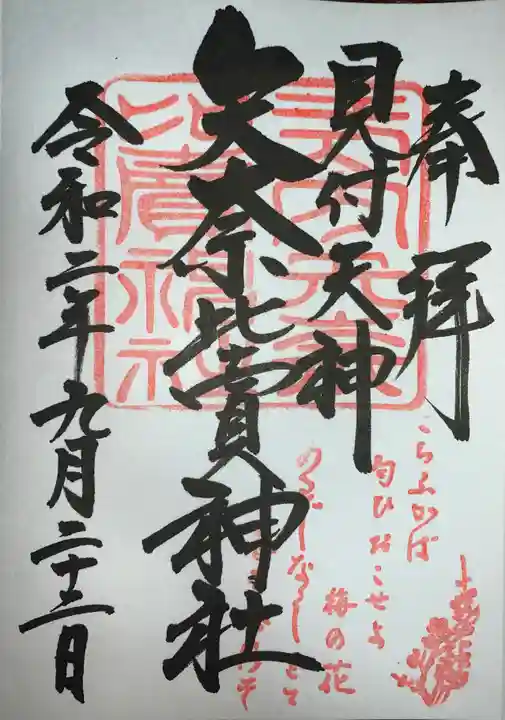 奉拝
見付天神
矢奈比賣神社
令和二年九月二十三日
矢奈比賣神社
こちふかば
匂ひおこせよ
梅の花
あるじなしとて